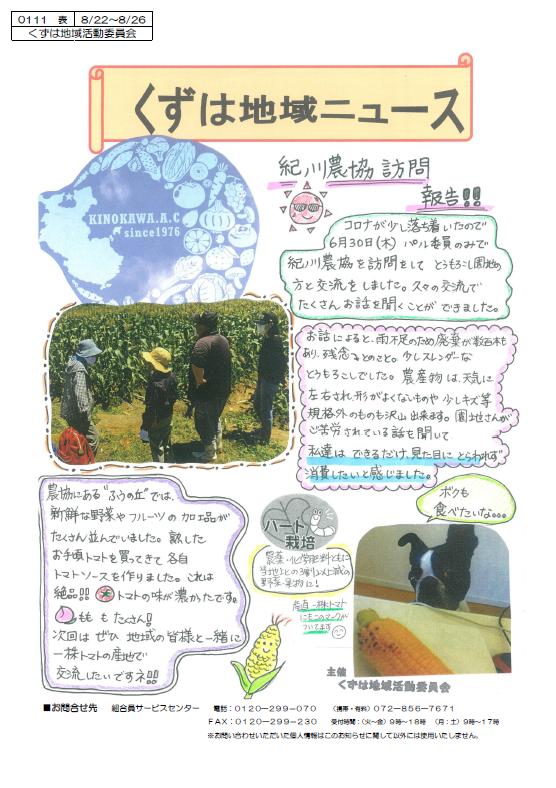 0111 表 8/22～8/26
くずは地域活動委員会
くずは地域ニュース
KINOKAWA.A.C
since1976
紀ノ川農協訪問
報告!!
コロナが少し落ち着いたので
6月30日(木) パル委員のみで
紀ノ川農協を訪問をして とうもろこし園地の
方と交流をしました。久々の交流で
たくさんお話を聞くことができました。
お話によると、雨不足のため廃棄が数百本も
あり、残念とのこと。少しスレンダーな
とうもろこしでした。農産物は、天気に
左右され、形がよくないものや 少しキズ等
規格外のものも沢山出来ます。園地さんが
ご苦労されている話を聞いて
私達は できるだけ、見た目に とらわれず
消費したいと感じました。
農協にある"ふうの丘"では、
新鮮な野菜やフルーツの加工品が
たくさん並んでいました。熟した
お手頃トマトを買ってきて 各自
トマトソースを作りました。これは
絶品!! トマトの味が濃かったです。
もも も たくさん!
次回は ぜひ 地域の皆様と一緒に
一株トマトの産地で
交流したいですネ!!
ハート
栽培
農薬・化学肥料ともに
当地比の3割以上減の
野菜・果物に!
産直一株トマト
にもこのマークが
ついてます
ボクも
食べたいな…
主催
くずは地域活動委員会
■お問合せ先 組合員サービスセンター 電話:0120-299-070 (携帯・有料) 072-856-7671
FAX:0120-299-230 受付時間:(火～金) 9時～18時 (月:土) 9時～17時
※お問い合わせいただいた個人情報はこのお知らせに関して以外には使用いたしません。